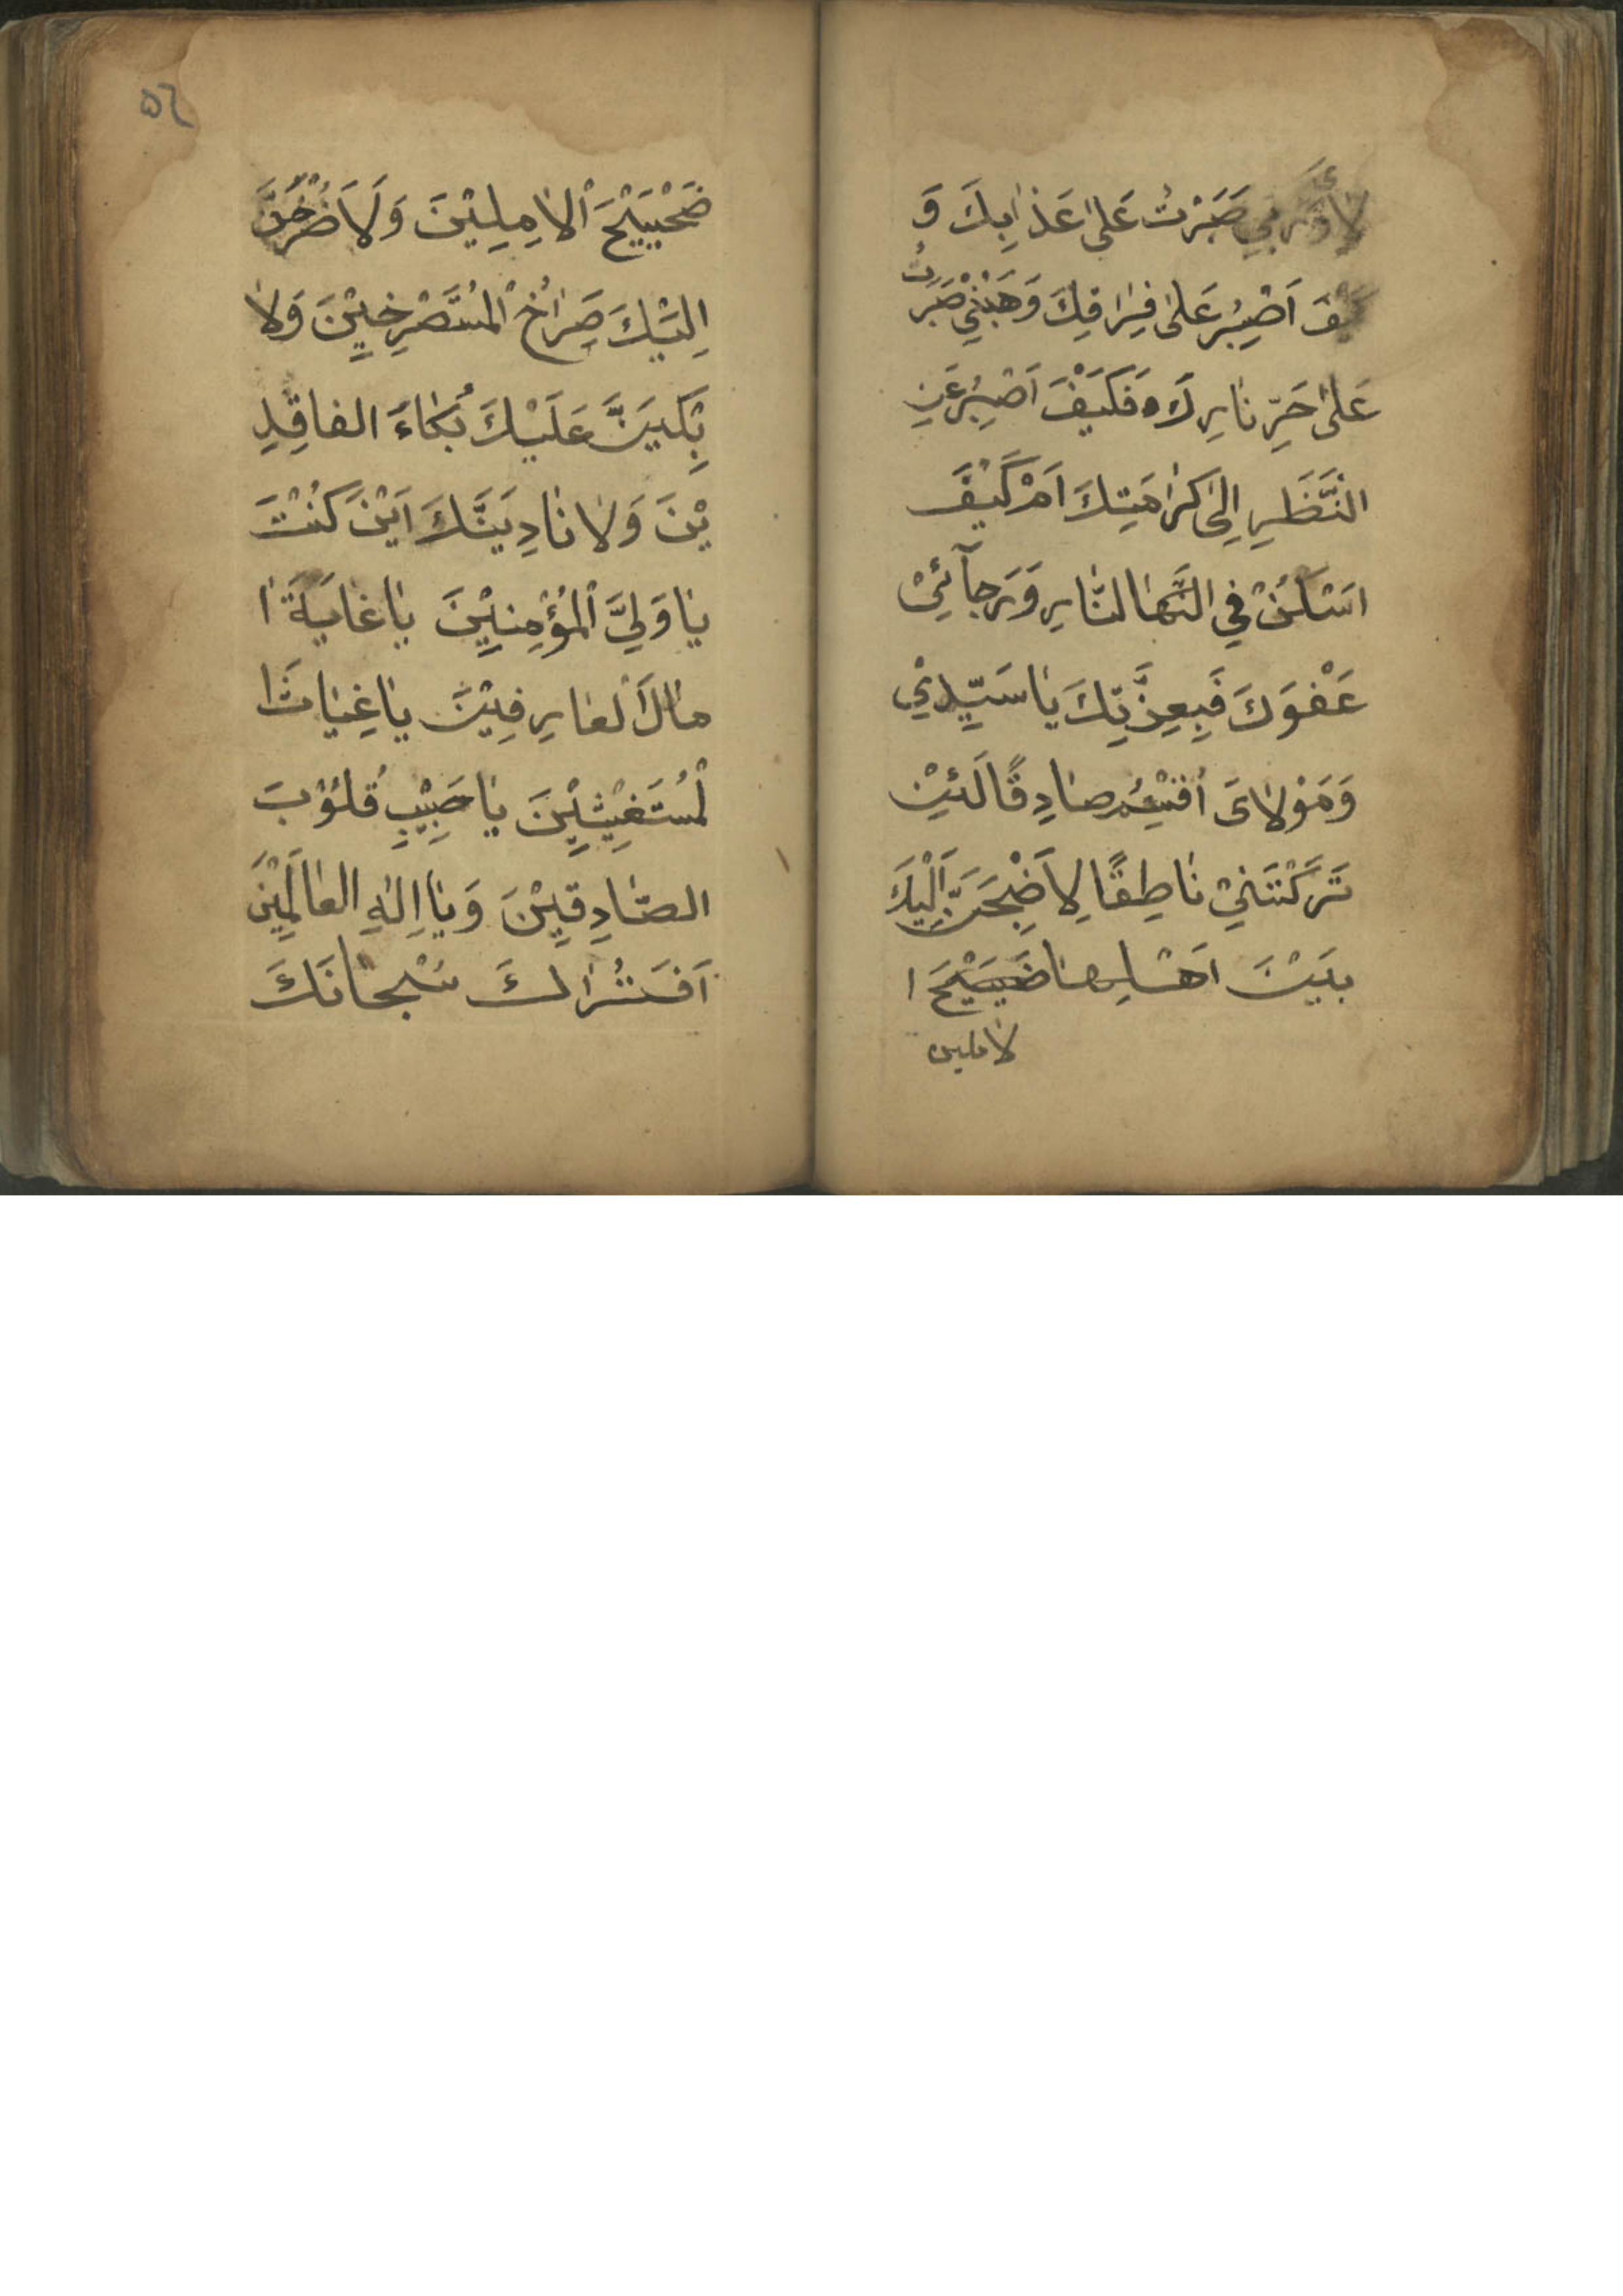 صَبَرْتُ عَلىٰ عَذٰابِكَ وَ
اَصْبِرُ عَلىٰ فِرٰاقِكَ وَهَبْنِيْ صَبَرْتُ
عَلىٰ حَرِّ نٰارِكَ فَكَيْفَ اَصْبِرُ عَنِ
النَّظَرِ اِلىٰ كَرٰامَتِكَ اَمْ كَيْفَ
اَسْكُنُ فِي النّٰارِ وَرَجآئِيْ
عَفْوَكَ فَبِعِزَّتِكَ يٰا سَيِّدِيْ
وَمَوْلٰاىَ اُقْسِمُ صٰادِقًا لَئِنْ
تَرَكْتَنِيْ نٰاطِقًا لِاَضِجَّنَّ اِلَيْكَ
بَيْنَ اَهْلِهٰا ضَجِيْجَ ا
لاملين
٥٦
ضَجْيِيْجَ اْلاٰمِلِيْنَ وَلَاَصْرُخَنَّ
اِلَيْكَ صِرٰاخَ الْمُسْتَصْرِخِيْنَ وَلاٰ
بْكِيَنَّ عَلَيْكَ بُكٰاءَ الفاقِدِ
يْنَ وَلاٰنٰادِيَنَّكَ اَيْنَ كُنْتَ
يٰا وَلِيَّ الْمُؤْمِنِيْنَ يٰا غٰايَةَ اٰ
مٰالَ الْعٰارِفِيْنَ يٰا غِيٰاثَ ا
لْمُسْتَغِيْثِيْنَ يٰا حَبِيْبِ قُلُوْبَ
الصّٰادِقِيْنَ وَيٰا اِلٰهِ العٰالَمِيْنَ
اَفَتُرٰاكَ سُبْحانَكَ